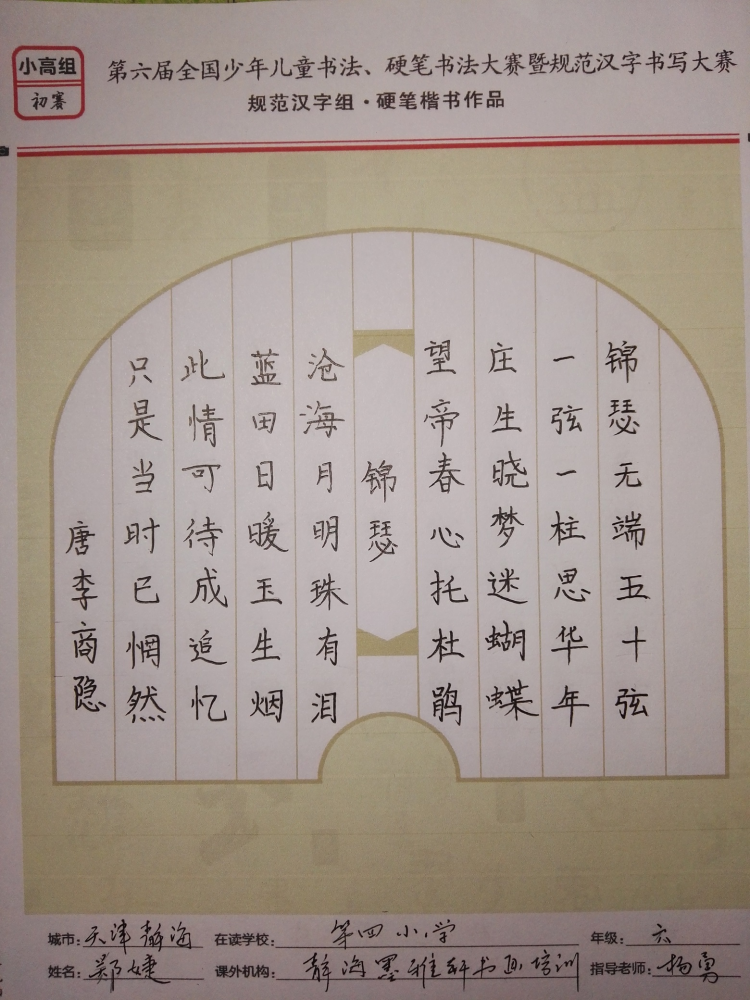 小高组
初赛
第六届全国少年儿童书法、硬笔书法大赛暨规范汉字书写大赛
规范汉字组·硬笔楷书作品
锦瑟无端五十弦
一弦一柱思华年
庄生晓梦迷蝴蝶
望帝春心托杜鹃
锦瑟
沧海月明珠有泪
蓝田日暖玉生烟
此情可待成追忆
只是当时已惘然
唐李商隐
城市:天津静海 在读学校:第四小学 年级:六
姓名:郑婕 课外机构:静海墨雅轩书画培训 指导老师:杨勇